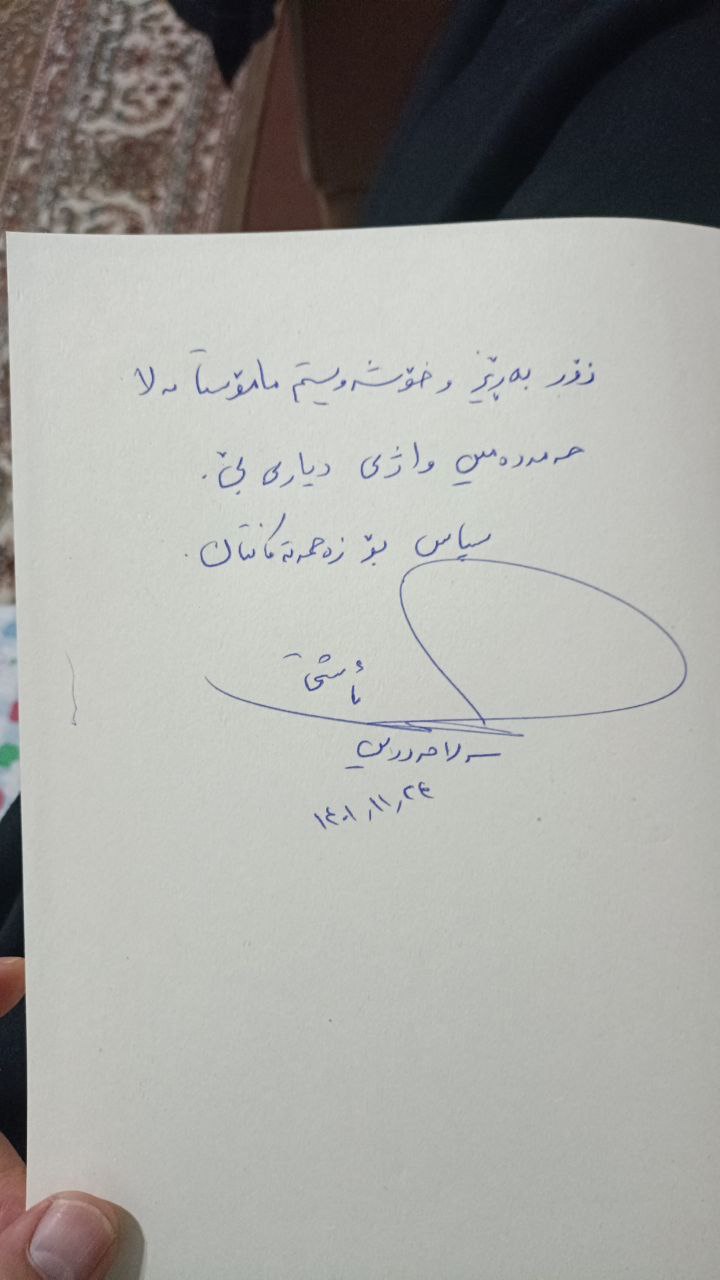 زۆر بەڕێز و خۆشەویستم مامۆستا مەلا
حەمەدەمین واژی دیاری بێ.
سپاس بۆ زەحمەتەکانتان.
ئاشتی
سەلاحەددین
١٤٠١,١١,٢٤